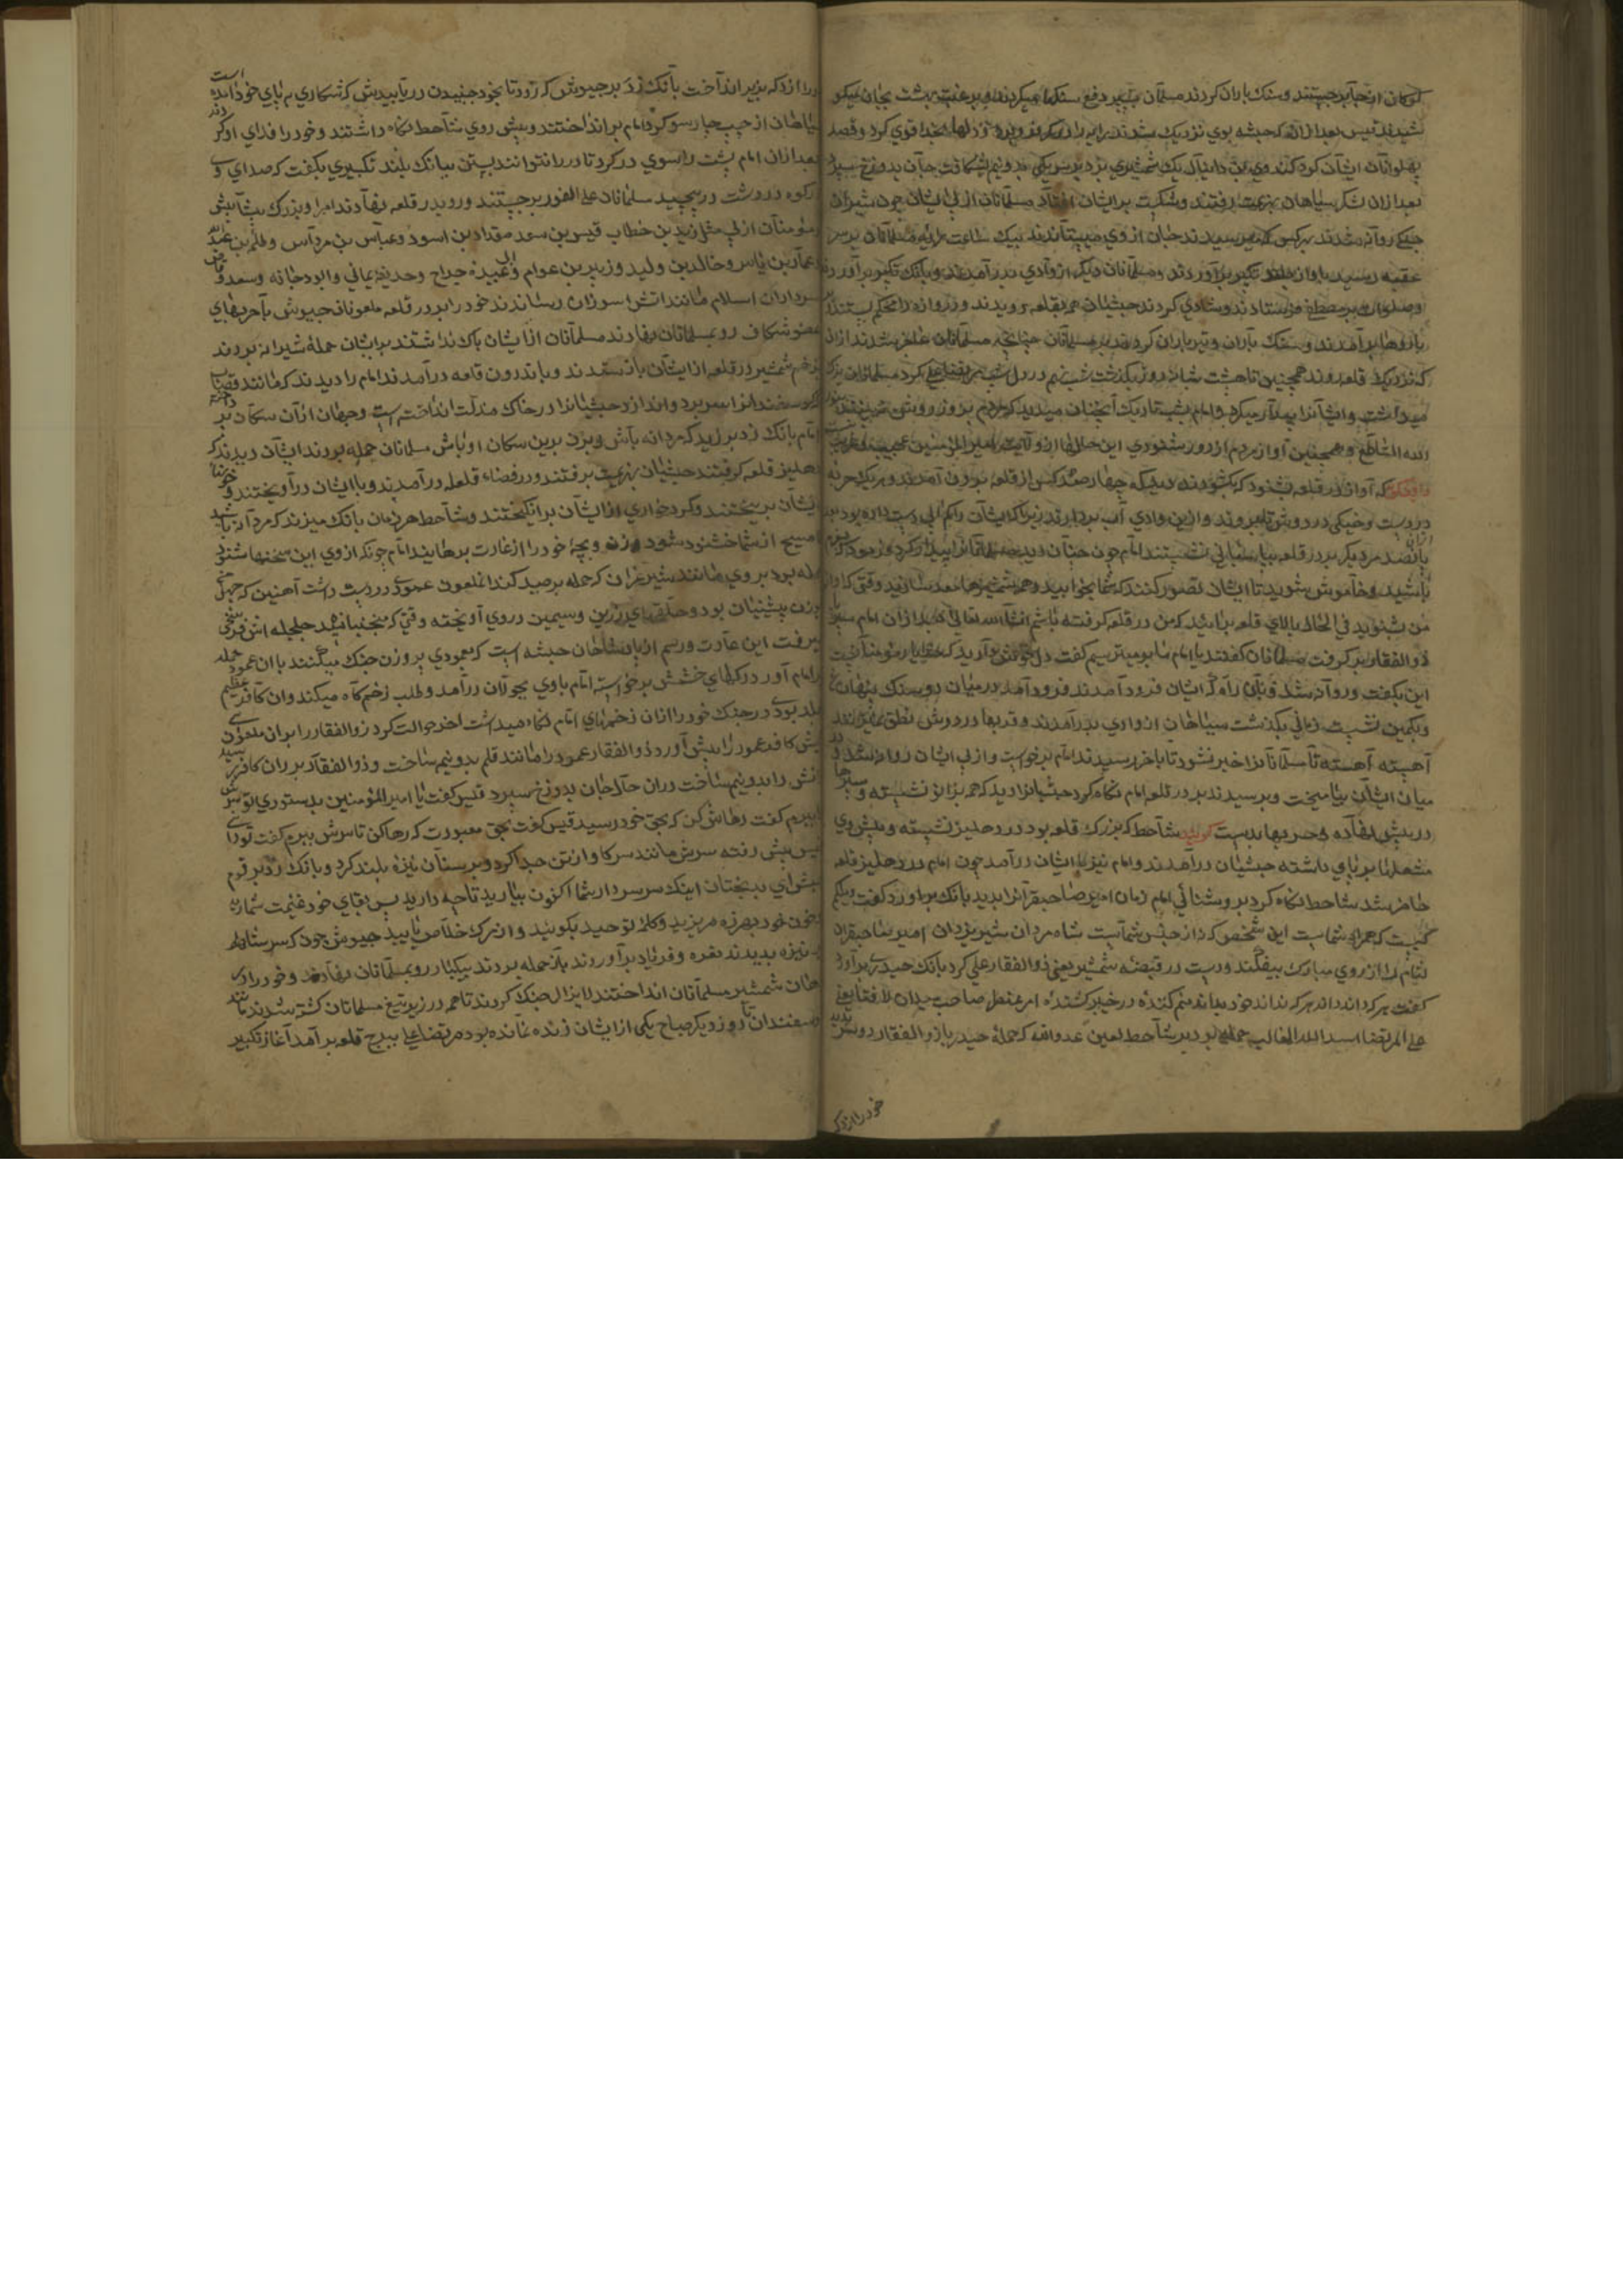 کوهان از جا برجستند و سنک باران کردند مسلمآن بسپر دفع سنکها میکردند و برغبت بهشت بجان میکو
شیدند پس بعد ازانکه حبشه بوی نزدیک شدند
پهلوانان ایشآن کرد یک شمشیری بزد بر سر یکی بدونیم شکافت جآن بدوزخ سپرد
بعد ازان لشکر سیاهان بهزیمت رفتند و شکست بر ایشان افتاد مسلمآنان از پی ایشان چون شیران
جنکی روآنه شدند بهرکس که میرسیدند جان از وی میستآندند بیک ساعت مسلمانان بر سر
عقبه رسیدند باواز بلند تکبیر برآوردند و مسلمآنان دیکر از وآدی بدر آمدند و بانک تکبیر برآوردند
و صلوات بر مصطفی فرستادند و شادی کردند حبشیان هم بقلعه رویدند و دروازه را محکم بستند
بارو ها برآمدند و سنک باران و تیر باران کردند بر مسلمآنان چنانچه مسلمانان عاجز شدند ازان
که نزدیک قلعه روند همچنین تا هشت شبانه روز بکذشت شب نهم در دل شب مرتضی علی کرد مسلمانان
میداشت و ایشآنرا بیدآر میکرد و امام شب تاریک آنچنان میدید که مردم بروز روشن می بینند
الله الساطع و همچنین آواز مردم از دور بشنودی این حالها از ولآیت امیر المؤمنین عجیب و غریب
که آواز در قلعه بشنود که بکشودند دید که چهار صد کس از قلعه بیرون آمدند و هر یک حربه
در دست و خیکی در دوش تا بروند و ازین وادی آب بردارند زیراکه ایشآن را کم آبی دست داده بود
پانصد مرد دیکر بر در قلعه بپاسبانی نشستند امآم چون چنآن دید مسلمآنانرا بیدار کرد و فرمود که
باشید و خآموش شوید تا ایشان تصور کنند که شما بخوابید و همه شمشیرها معد سازید وقتی که آواز
من بشنوید فی الحال بالای قلعه برائید که من در قلعه کرفته باشم انشآء الله تعالی بعد ازان امام سپر
ذوالفقار برکرفت مسلمآنان کفتند یا امام ما بتو میترسیم کفت دل خوش دارید که خدا یار مؤمنآن است
این بکفت و روآنه شد و بآن راه که ایشان فرود آمدند فرود آمد در میان دو سنک پنهان
و بکمین نشست زمانی بکذشت سیاهان از وادی بدرآمدند و قربها در دوش نطق نمیزدند
آهسته آهسته تا مسلمآنآنرا خبر نشود تا باخر رسیدند امام برخواست و از پی ایشان روان شد و در
میان ایشآن بیآمیخت و برسیدند بر در قلعه امام نکاه کرد حبشیانرا دید که همه بزانو نشسته و سپرها
در پیش نهآده و حربها بدست کویند شآحط که بزرک قلعه بود در دهلیز نشسته و پیش وی
مشعلها بر پای داشته حبشیان درآمدند و امام نیز با ایشان درآمد چون امام در دهلیز قلعه
حاضر شد شاحط نکاه کرد بروشنائی امام زمان امیر صاحبقرآنرا بدید بانک برآورد کفت ویلکم
کیست که همراه شماست این شخص که نه از جنس شمآست شاه مردان شیر یزدان امیر صاحبقران
لثام را از روی مبارک بیفکند و دست در قبضه شمشیر یعنی ذوالفقار علی کرد بانک حیدری برآورد
کفت هر که داند داند هر که نداند خود بداند منم کننده در خیبر کشنده عمر عنتر صاحب میدان لافتا یعنی
علی المرتضا اسد الله الغالب حمله برد بر شآحط لعین عدوالله که حمله حیدر با ذوالفقار دو سر بدید
خود را از دکه
را از دکه بزیر اندآخت بآنک زد بر جیوش که زود تا بخود جنبیدن دریابیدش که شکاری به پای خود آمده است
سیاهان از چپ چار سو کرد امام براند اختند و پیش روی شآحط نکاه داشتند و خود را فدای او کردند
بعد ازان امام پشت را سوی در کرد تا در را نتوانند بستن ببانک بلند تکبیری بکفت که صدای وی
در کوه و دشت در پیچید مسلمانان علی الفور برجستند و رو بدر قلعه نهآدند امرا و بزرک بیشآبیش
و مؤمنآن از پی مثل زید بن خطاب قیس بن سعد مقداد بن اسود و عباس بن مردآس و طلحه بن عبدالله
و عمآر بن یاسر و خالد بن ولید و زبیر بن عوام و ابی عبیده جراح و حذیفه یمانی و ابودجانه و سعد وقاص
سرداران اسلام مانند اتش سوزان رساندند خود را بر در قلعه ملعونان جیوش با حربهای
عضو شکاف رو بمسلمانان نهادند مسلمآنان از ایشان باک نداشتند بر ایشان حمله شیرانه بردند
بزخم شمشیر در قلعه از ایشآن بازستدند و باندرون قلعه درآمدند امام را دیدند که مانند قصاب
کوسفندانرا سر برد و اندازد حبشیانرا در خاک مذلت انداخته است و جهان ازان سکآن بر داشته
امام بانک زد بر زید که مردانه بآش و بزن برین سکان اوباش مسلمانان حمله بردند ایشآن دیدند که
دهلیز قلعه کرفتند حبشیان بهزیمت برفتند و در فضاء قلعه درآمدند و با ایشان درآویختند و خونها
ایشآن بریختند و کرد خواری از ایشآن برانکیختند و شآحط هر زمان بانک میزند که مردآنه باشید
مسیح از شما خشنود شود و زن و بچه خود را از غارت برهانید امام چونکه از وی این سخنها شنود
حمله برد بر وی مانند شیر غران که حمله بر صید کند ان ملعون عمودی در دست داشت آهنین که چهل
بوزن پیشینیان بود و حلقهای زرین و سیمین در وی آویخته وقتی که می جنبانید جلجله اش فرسخی
میرفت این عادت و رسم ازان شاهان حبشه است که عمودی بر وزن جنک میکنند با ان عمود حمله
بر امام آورد رکهای خشمش برخواسته امام با وی بجولان درآمد و طلب زخم کاه میکند و ان کآفر عظیم
بلد بودی در جنک خود را ازان زخمهای امام نکاه میداشت اخر حوالت کرد ذوالفقار را بران ملعون
پیش کافر عمود را پیش آورد ذوالفقار عمود را مانند قلم بدونیم ساخت و ذوالفقآر بران کافر رسید
تنش را بدونیم ساخت دران حآل جان بدوزخ سپرد قیس کفت یا امیر المؤمنین بدستوری تو سرش
ببرم کفت رهاش کن که بحق خود رسید قیس کفت بحق معبودت که رها کن تا سرش ببرم کفت تو دانی
قیس پیش رفته سرش مانند سر کاو از تن جدا کرد و بر سنآن نیزه بلند کرد و بانک زد بر قوم
حبش ای بدبختان اینک سر سردار شما اکنون بیارید تا چه دارید پس بقای خود غنیمت شمارید
و خون خود بهرزه مریزید و کلمه توحید بکوئید و از مرک خلآص یابید جیوش چون که سر شاحط
بر نیزه بدیدند نعره و فریاد برآوردند باز حمله بردند بیکبار رو بمسلمآنان نهآدند و خود را در
دهان شمشیر مسلمآنان انداختند لایزال جنک کردند تا همه در زیر تیغ مسلمانان کشته شدند مانند
کوسفندان تا روز دیکر صباح یکی از ایشان زنده نمانده بود مرتضا علی ببرج قلعه برآمد آغاز تکبیر